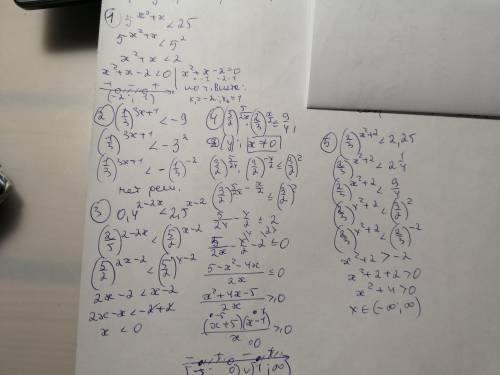 ① 5^{x²+x} < 25
5^{x²+x} < 5²
x²+x < 2
x²+x-2 < 0 | x²+x-2=0
x₁=-2; x₂=1
(-2; 1)
② (1/3)^{3x+1} < -9
(1/3)^{3x+1} < -3²
(1/3)^{3x+1} < -(1/3)^{-2}
нет реш.
③ 0,4^{2-2x} < 2,5^{x-2}
(2/5)^{2-2x} < (5/2)^{x-2}
(5/2)^{2x-2} < (5/2)^{x-2}
2x-2 < x-2
2x-x < -2+2
x < 0
x ≠ 0
5/2x - x/2 ≤ 2
5/2x - x/2 - 2 ≤ 0
5-x²-4x / 2x ≤ 0
x²+4x-5 / 2x ≥ 0
(x+5)(x-1) / x ≥ 0
⑤ (2/3)^{x²+2} < 2,25
(2/3)^{x²+2} < 2 1/4
(2/3)^{x²+2} < 9/4
(2/3)^{x²+2} < (3/2)²
(2/3)^{x²+2} < (2/3)^{-2}
x²+2 > -2
x²+2+2 > 0
x²+4 > 0
x∈(-∞; ∞)